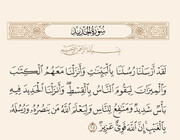 سُورَةُ الحَدِيدِ
بِسْمِ اللَّهِ الرَّحْمَٰنِ الرَّحِيمِ
لَقَدْ أَرْسَلْنَا رُسُلَنَا بِالْبَيِّنَٰتِ وَأَنزَلْنَا مَعَهُمُ الْكِتَٰبَ
وَالْمِيزَانَ لِيَقُومَ النَّاسُ بِالْقِسْطِ وَأَنزَلْنَا الْحَدِيدَ فِيهِ
بَأْسٌ شَدِيدٌ وَمَنَٰفِعُ لِلنَّاسِ وَلِيَعْلَمَ اللَّهُ مَن يَنصُرُهُ وَرُسُلَهُ
بِالْغَيْبِ إِنَّ اللَّهَ قَوِيٌّ عَزِيزٌ ٢٥